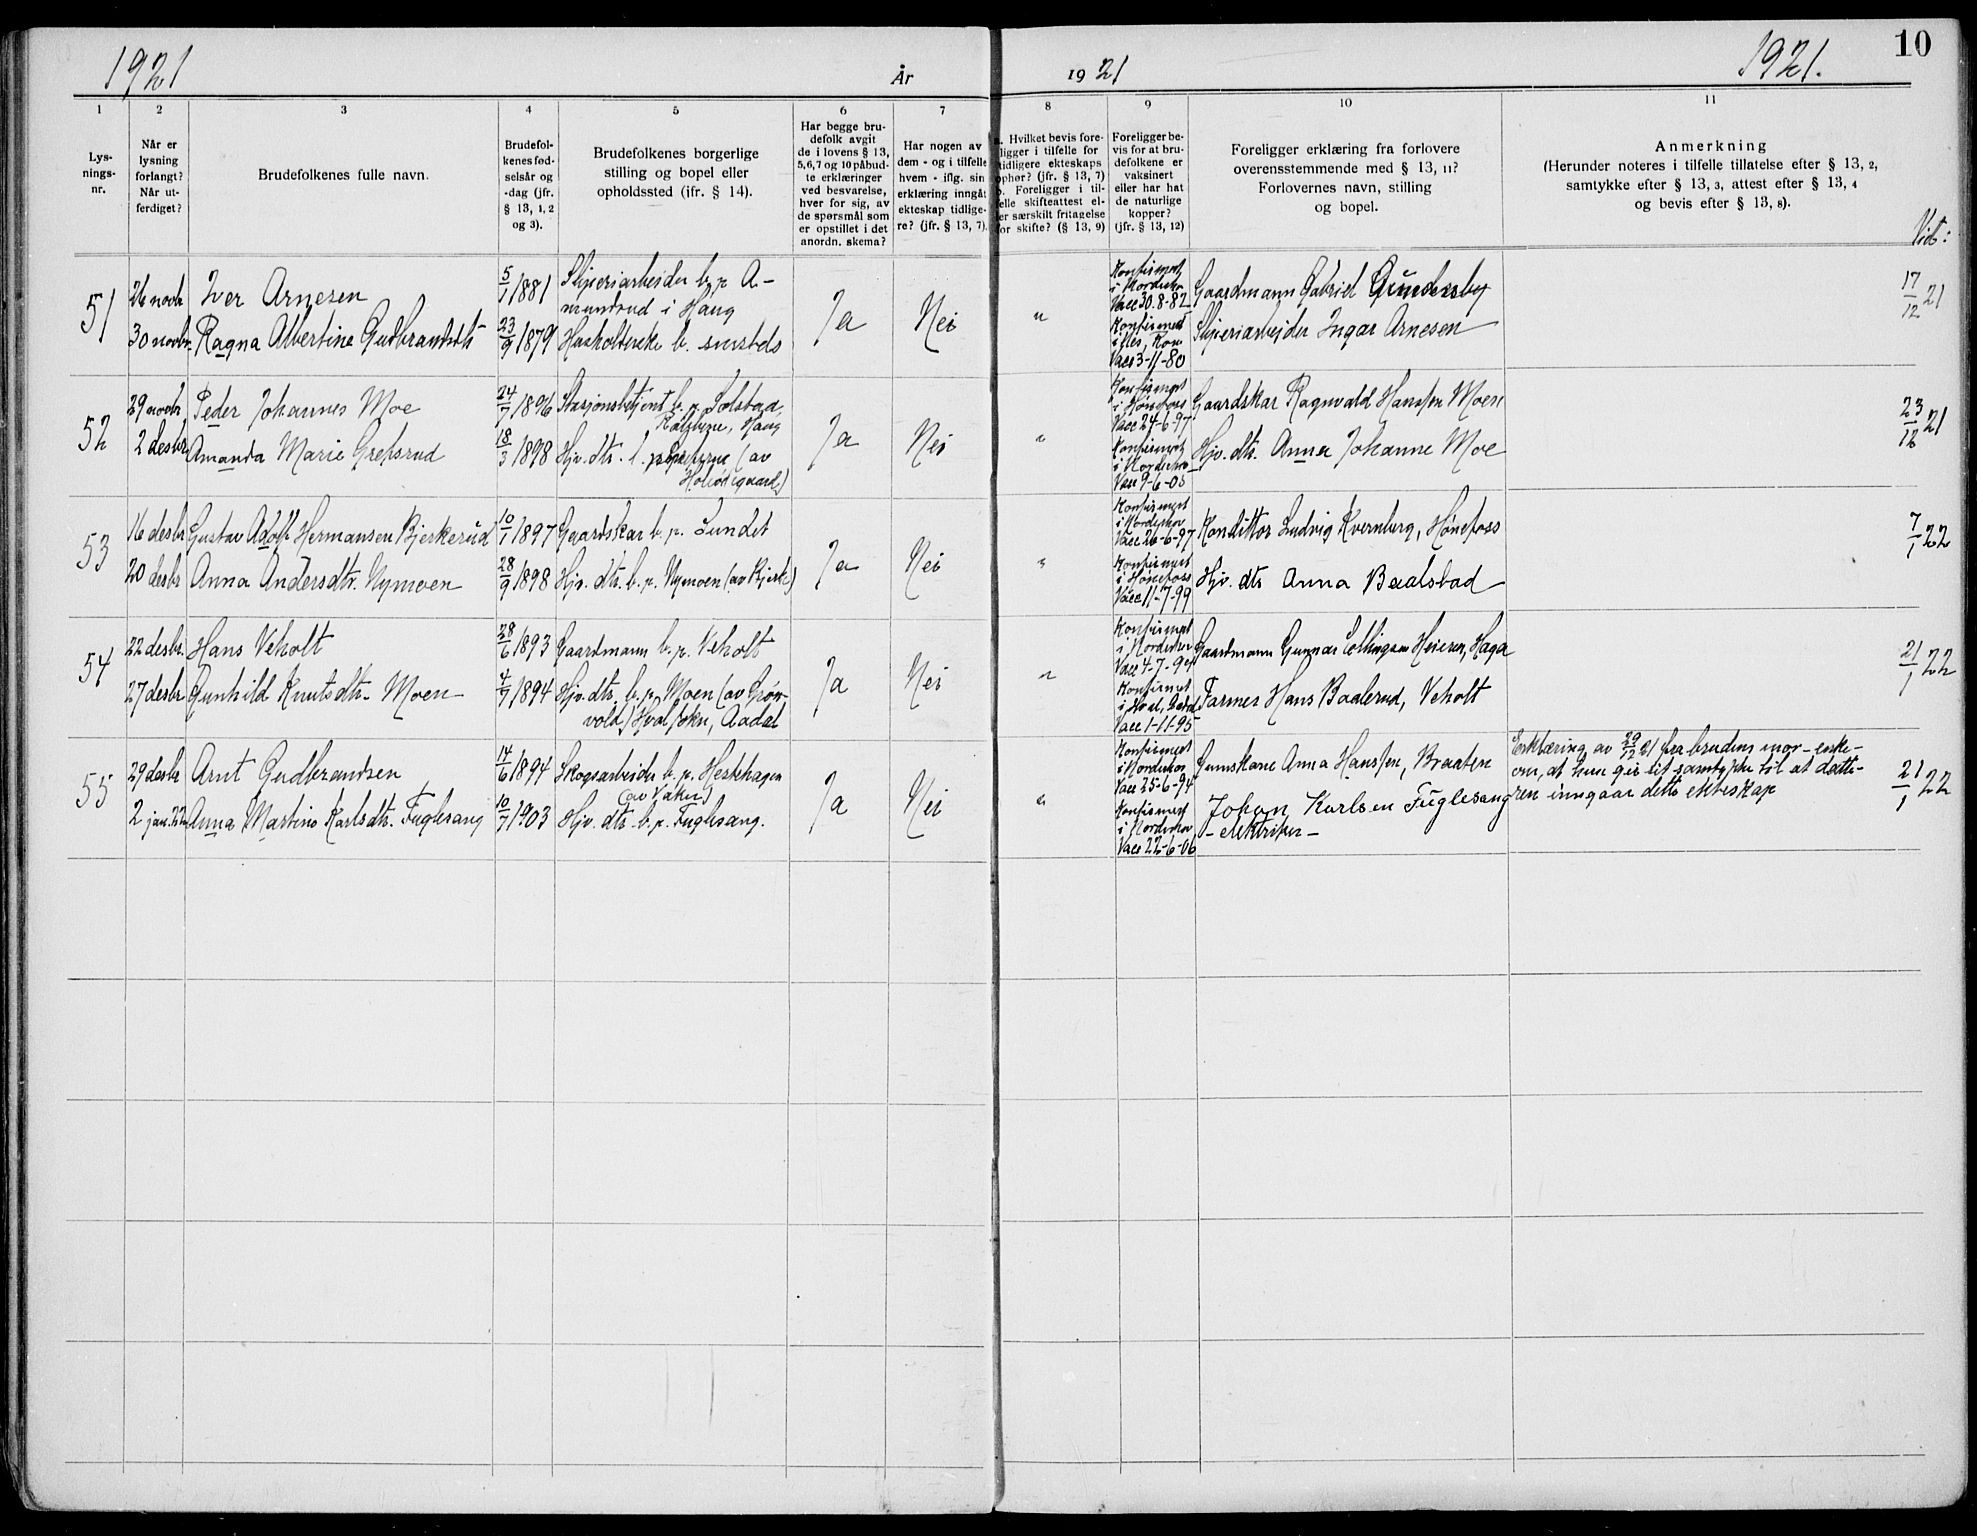 1921
År
19 21
1921.
10
1
2
3
4
5
6
7
8
9
10
11
Lys-
nings-
nr.
Når er
lysning
forlangt?
Når ut-
ferdiget?
Brudefolkenes fulle navn.
Brudefol-
kenes fød-
selsår og
-dag (jfr.
§ 13, 1, 2
og 3).
Brudefolkenes borgerlige
stilling og bopel eller
opholdssted (jfr. § 14).
Har begge bru-
defolk avgit
de i lovens § 13,
5,6,7 og 10 påbud-
te erklæringer
ved besvarelse,
hver for sig, av
de spørsmål som
er opstillet i det
anordn. skema?
Har nogen av
dem - og i tilfelle
hvem - iflg. sin
erklæring inngåt
ekteskap tidlige-
re? (jfr. § 13, 7).
a. Hvilket bevis fore-
ligger i tilfelle for
tidligere ekteskaps
ophør? (jfr. § 13, 7)
b. Foreligger i til-
felle skifteattest el-
ler særskilt fritagelse
for skifte? (§ 13, 9)
Foreligger be-
vis for at bru-
defolkene er
vaksinert
eller har hat
de naturlige
kopper?
(jfr. § 13, 12)
Foreligger erklæring fra forlovere
overensstemmende med § 13, 11?
Forlovernes navn, stilling
og bopel.
Anmerkning
(Herunder noteres i tilfelle tillatelse efter § 13, 2,
samtykke efter § 13, 3, attest efter § 13, 4
og bevis efter § 13, 8).
51
26 novbr
30 novbr.
Iver Arnesen
Ragna Albertine Gudbrandsdtr
5/1 1881
23/9 1879
Sliperiarbeider b. p. A-
mundrud i Haug
Husholderske b. smsteds
Ja
Nei
"
Konfirmert
i Norderhov
Vacc 30-8-82
Konfirmert
i Nes,
Vacc 3-11-80
Gaardmann Gabriel Gundersby
Sliperiarbeider Ingar Arnesen
17/12 21
52
29 novbr
2 desbr
Peder Johannes Moe
Amanda Marie Grefsrud
24/7 1896
18/3 1898
Stasjonsbetjent b. p. Solstad,
Haug
Hjv. dtr. b. p. (av
Ja
Nei
"
Konfirmert
i Hønefoss
Vacc 24-6-97
Konfirmert
i Norderhov
Vacc 9-6-05
Gaardskar Ragnvald Hanssen Moen
Hjv. dtr. Anna Johanne Moe
23/12 21
53
16 desbr
20 desbr
Gustav Adolf Hermansen Bjerkerud
Anna Andersdtr. Nymoen
10/1 1897
28/9 1898
Gaardskar b. p. Lundet
Hjv. dtr. b. p. Nymoen (av Bjerke)
Ja
Nei
"
Konfirmert
i Norderhov
Vacc 26-6-97
Konfirmert
i Hønefoss
Vacc 11-7-99
Konditor Ludvig Kvernberg, Hønefoss
Hjv. dtr Anna Baalstad
7/1 22
54
22 desbr.
27 desbr
Hans Veholt
Gunhild Knutsdtr. Moen
28/6 1893
4/7 1894
Gaardmann b. p. Veholt
Hjv. dtr. b. p. Moen (av Grøn-
vold) Hval sokn, Aadal
Ja
Nei
"
Konfirmert
i Norderhov
Vacc 4-7-94
Konfirmert
i Hval, Aadal
Vacc 1-11-95
Gaardmann Gunnar Heieren, Haga
Farmer Hans Baalerud, Veholt
21/1 22
55
29 desbr
2 jan. 22
Arnt Gudbrandsen
Anna Martine Karlsdtr. Fuglesang
14/6 1894
10/7 1903
Skogsarbeider b. p. Hestehagen
(av Vaker)
Hjv. dtr. b. p. Fuglesang.
Ja
Nei
"
Konfirmert
i Norderhov
Vacc 25-6-94
Konfirmert
i Norderhov
Vacc 22-6-06
Anna Hanssen, Braaten
Johan Karlsen Fuglesang
- elektriker -
Erklæring av 29/12 21 fra brudens mor
om, at hun gir sit samtykke til at datte-
ren inngaar dette ekteskap
21/1 22